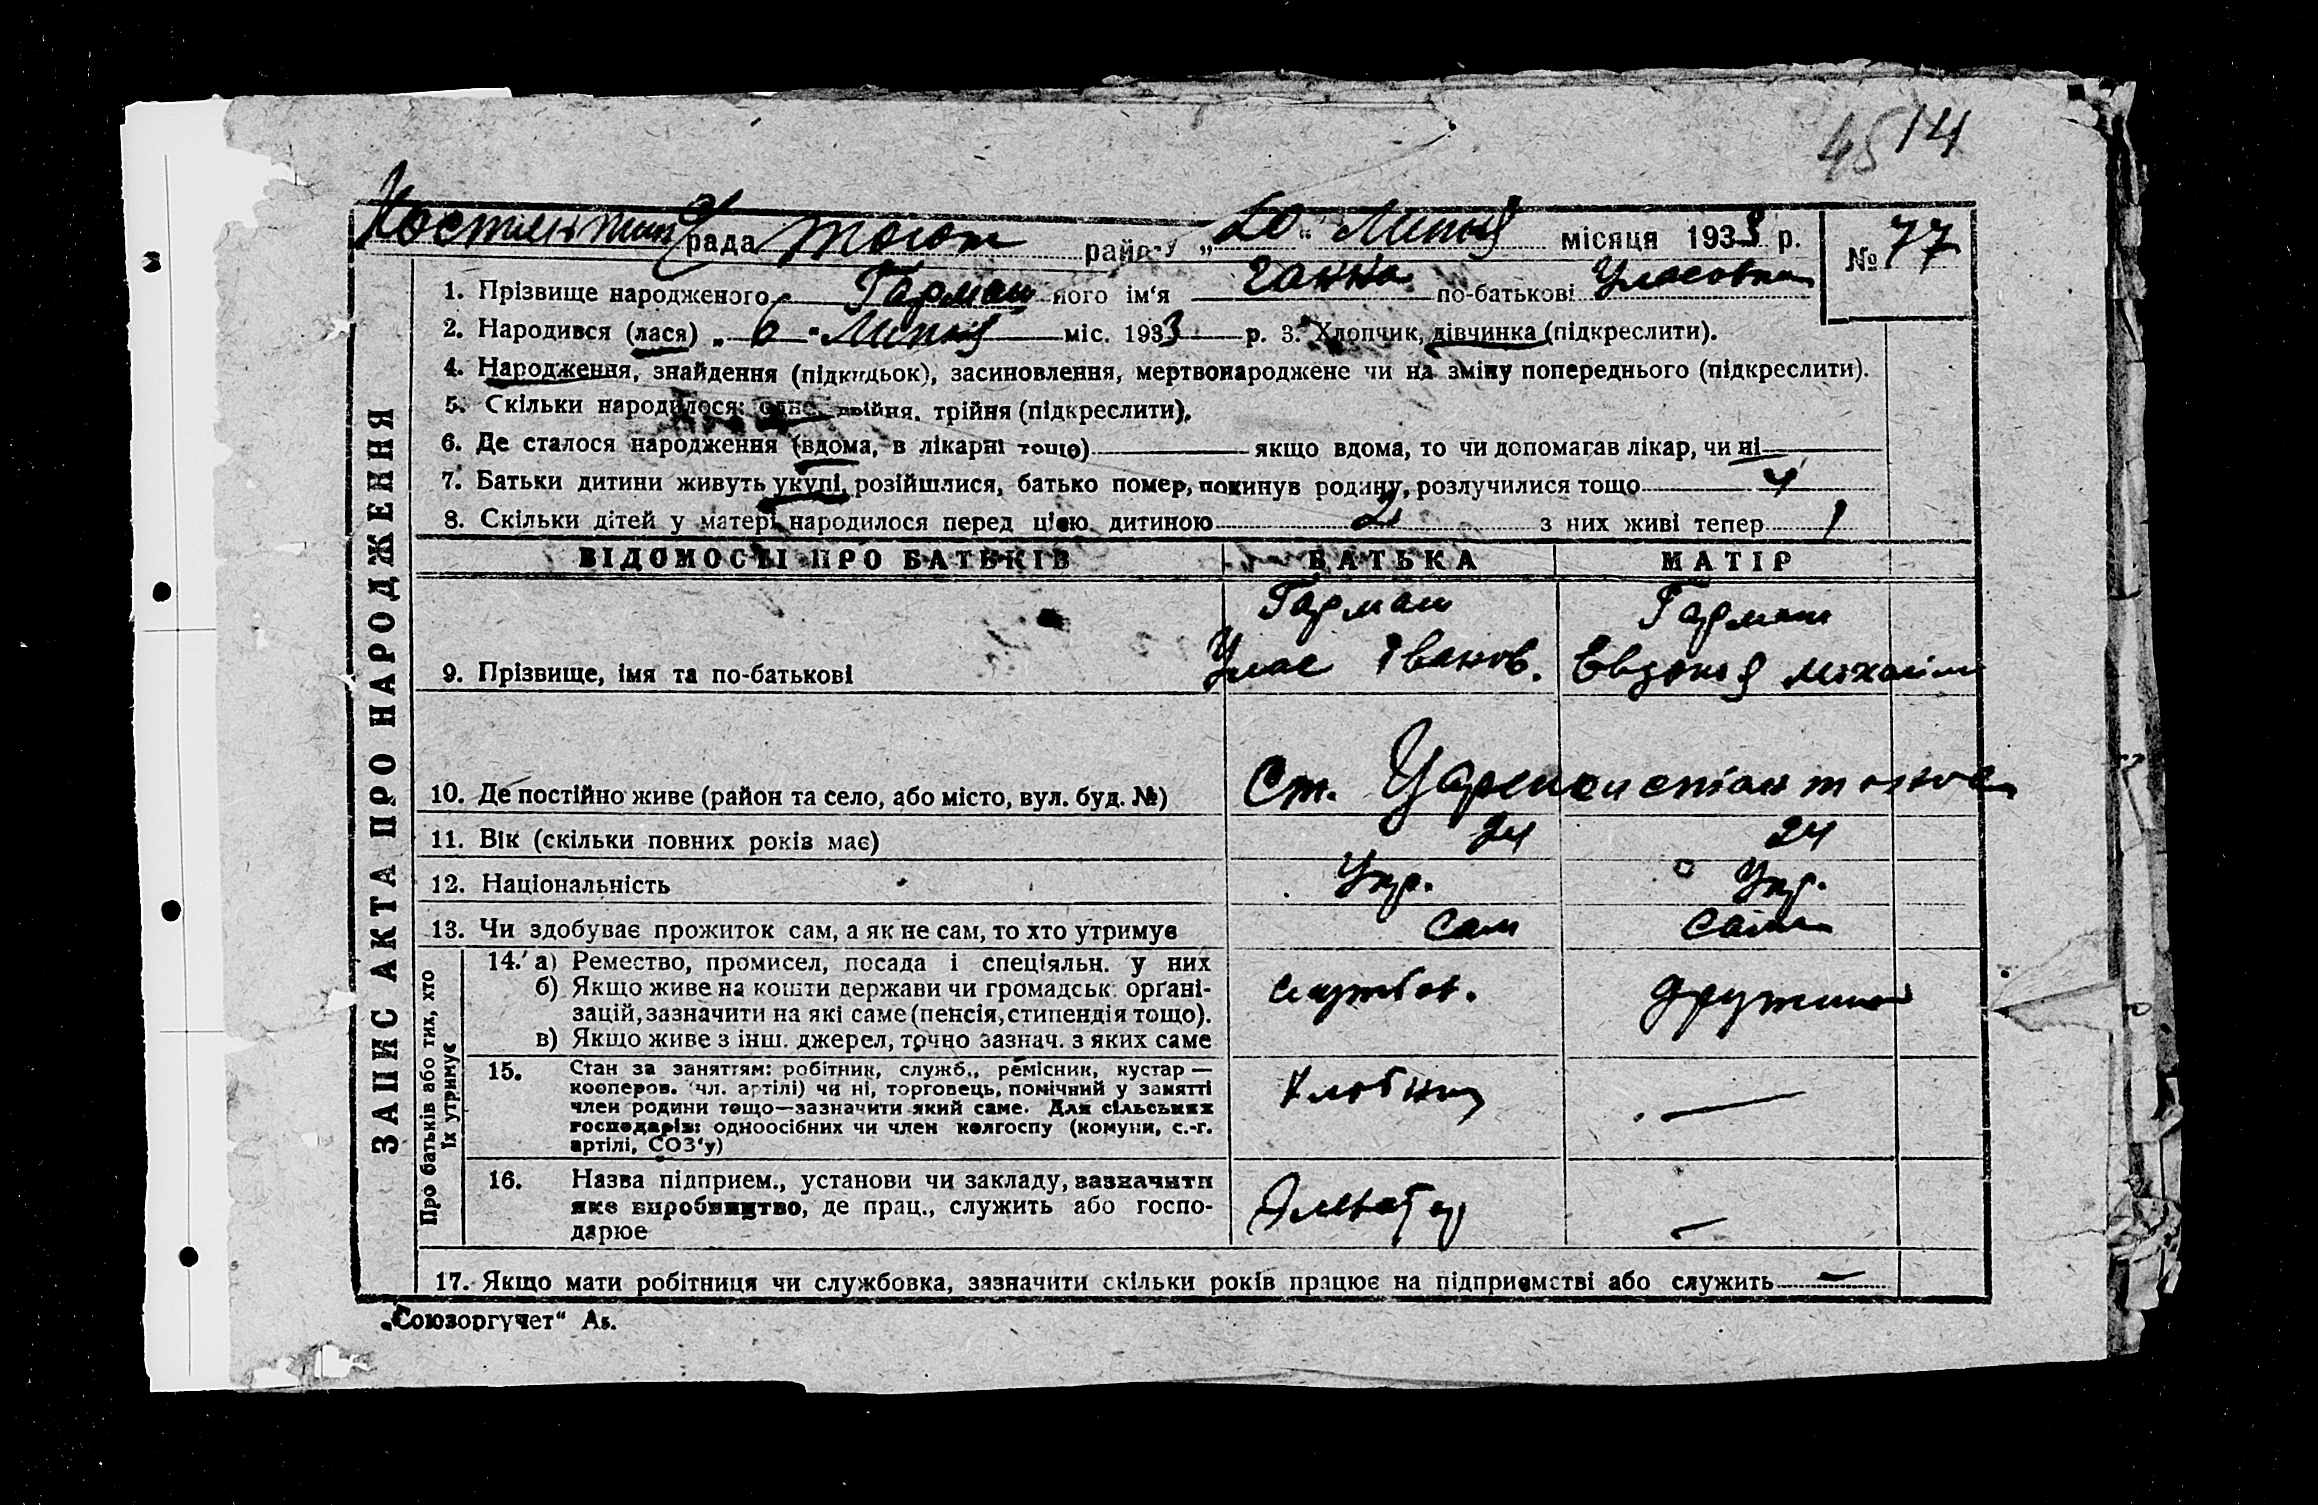 45 14
рада району „20“ Липня місяця 1933 р. № 77
1. Прізвище народженого Гармаш його ім‘я Ганна по-батькові Уласовна
2. Народився (лася) „6“ Липня міс. 1933 р. 3. Хлопчик, дівчинка (підкреслити).
4. Народження, знайдення (підкидьок), засиновлення, мертвонароджене чи на зміну попереднього (підкреслити).
5. Скільки народилося: одне, двійня, трійня (підкреслити).
6. Де сталося народження (вдома, в лікарні тощо) якщо вдома, то чи допомагав лікар, чи ні
7. Батьки дитини живуть укупі, розійшлися, батько помер, покинув родину, розлучилися тощо У
8. Скільки дітей у матері народилося перед цією дитиною 2 з них живі тепер 1
ЗАПИС АКТА ПРО НАРОДЖЕННЯ
ВІДОМОСТІ ПРО БАТЬКІВ БАТЬКА МАТІР
Гармаш Гармаш
9. Прізвище, імя та по-батькові Улас Іванов. Евдокія
10. Де постійно живе (район та село, або місто, вул. буд. №) Ст.
11. Вік (скільки повних років має) 24 24
12. Національність Укр. Укр.
13. Чи здобуває прожиток сам, а як не сам, то хто утримує сам сама
Про батьків або тих, хто їх утримує
14. а) Ремество, промисел, посада і спеціяльн. у них
б) Якщо живе на кошти держави чи громадськ. органі-
зацій, зазначити на які саме (пенсія, стипендія тощо). службов. дружина
в) Якщо живе з інш. джерел, точно зазнач. з яких саме
15. Стан за заняттям: робітник, служб., ремісник, кустар —
кооперов. (чл. артілі) чи ні, торговець, помічний у занятті
член родини тощо—зазначити який саме. Для сільських —
господарів: одноосібних чи член колгоспу (комуни, с.-г.
артілі, СОЗ‘у)
16. Назва підприєм., установи чи закладу, зазначити
яке виробництво, де прац., служить або госпо- —
дарює
17. Якщо мати робітниця чи службовка, зазначити скільки років працює на підприємстві або служить —
„Союзоргучет“ А5.